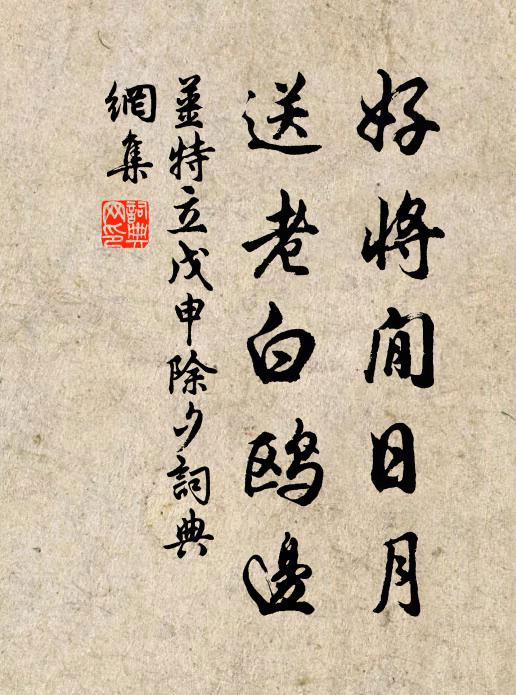 好將閒日月
送老白鷗邊
姜特立戊申除夕詞典
網集
詞典網印